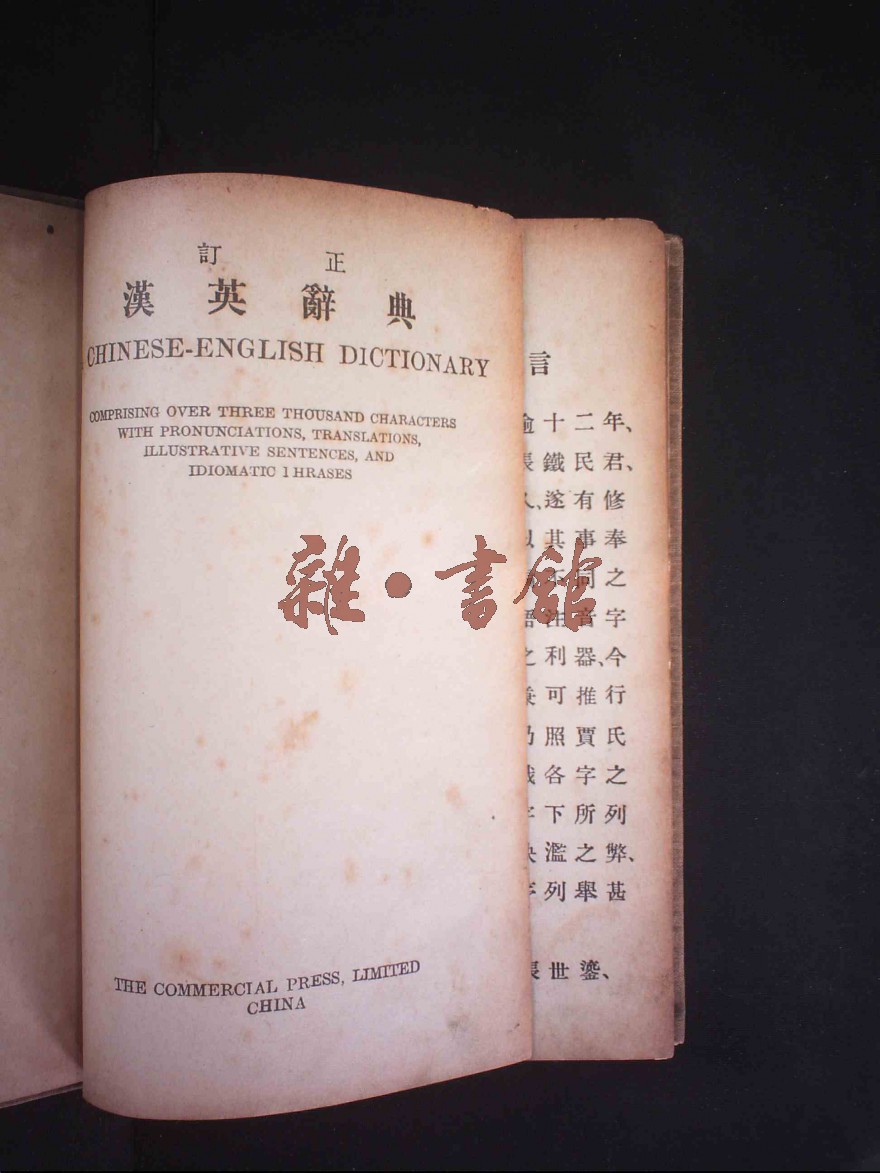 訂 正
漢 英 辭 典
CHINESE-ENGLISH DICTIONARY
COMPRISING OVER THREE THOUSAND CHARACTERS
WITH PRONUNCIATIONS, TRANSLATIONS,
ILLUSTRATIVE SENTENCES, AND
IDIOMATIC 1HRASES
雜·書館
THE COMMERCIAL PRESS, LIMITED
CHINA
言
十二年、
鐵民君、
遂有修
其事奉
不同之
注音字
之利器、今
可推行
照賈氏
各字之
下所列
濫之弊、
列舉甚
世鎏、